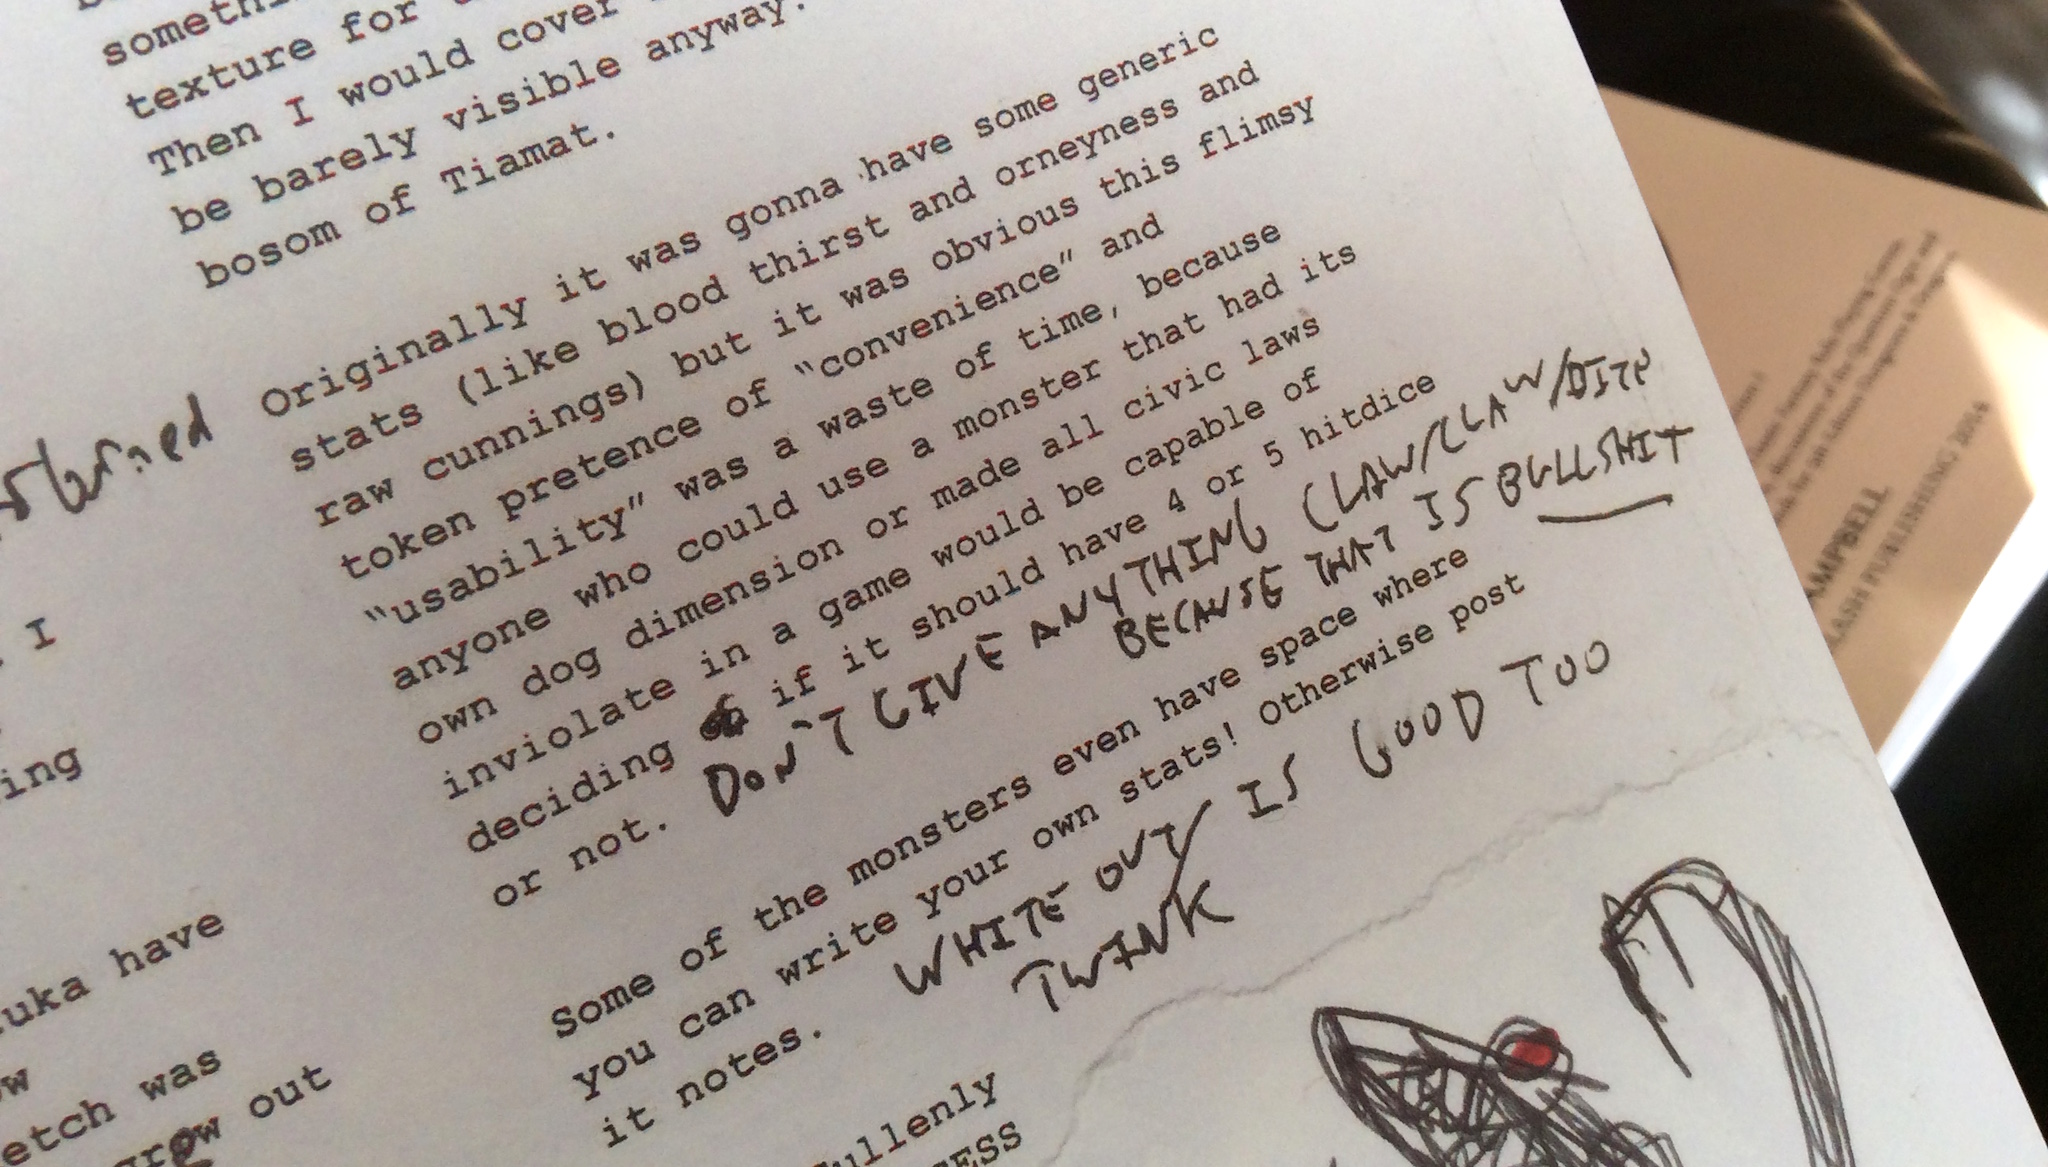 texture for
Then I would cover
be barely visible anyway.
bosom of Tiamat.
Originally it was gonna have some generic
stats (like blood thirst and orneyness and
raw cunnings) but it was obvious this flimsy
token pretence of "convenience" and
"usability" was a waste of time, because
anyone who could use a monster that had its
own dog dimension or made all civic laws
inviolate in a game would be capable of
deciding if it should have 4 or 5 hitdice
or not. DON'T GIVE ANYTHING CLAW/CLAW/BITE
BECAUSE THAT IS BULLSHIT
Some of the monsters even have space where
you can write your own stats! Otherwise post
it notes. WHITE OUT/ IS GOOD TOO
TWINK
I
ing
uka have
etch was
grow out
ullenly
ESS
AMPBELL
LASH PUBLISHING 2014